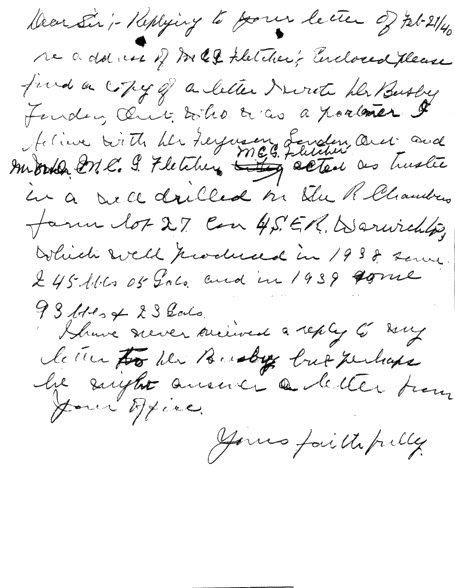 Dear Sir;- Replying to your letter of Feb-21/40
re address of M C G Fletcher; Enclosed please
find a copy of a letter I wrote Mr Busby
London, Ont. who was a partner I
belive with Mr Ferguson London Ont and
M. C. G. Fletcher, M C G. Fletcher acted as trustee
in a well drilled on the R Chambers
farm lot 27 Con 4 S.E.R. Warwick Tp,
which well produced in 1938 some
245 bbls 05 Gals. and in 1939 some
93 bbls & 23 Gals.
I have never received a reply to my
letter to Mr Busby but perhaps
he might answer a letter from
Your Office.
Yours faithfully.